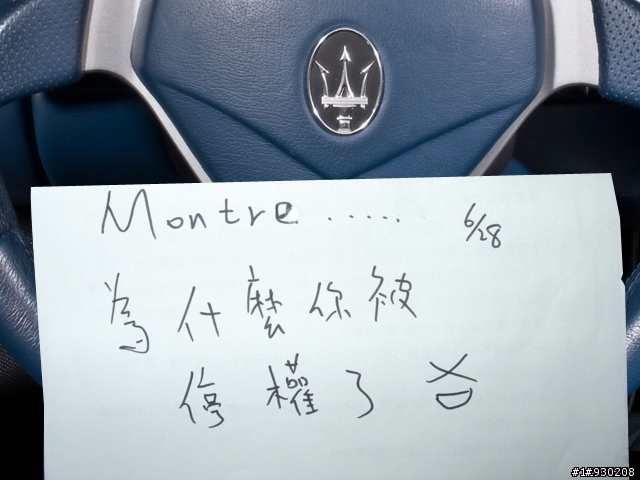 Montre..... 6/28
為什麼你被
停權了
#1#930208